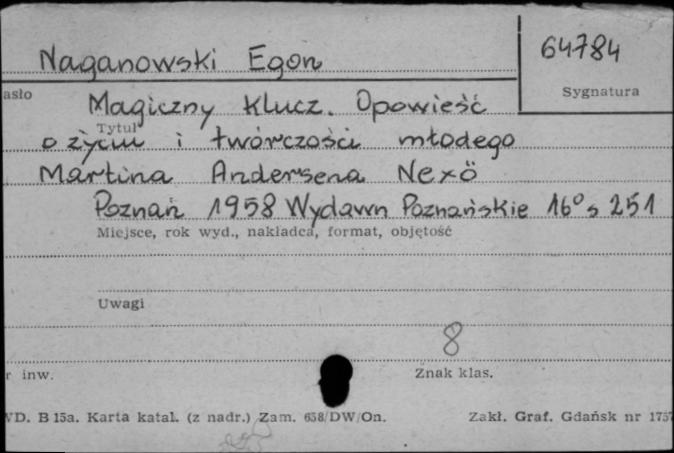 Naganowski Egon
64784
asło
Sygnatura
Magiczny klucz. Opowieść
Tytuł
o życiu i twórczości młodego
Martina Andersena Nexö
Poznań 1958 Wydawn Poznańskie 16° s 251
Miejsce, rok wyd., nakładca, format, objętość
Uwagi
8
r inw.
Znak klas.
WD. B 15a. Karta katal. (z nadr.) Zam. 658/DW/On.
Zakł. Graf. Gdańsk nr 1757